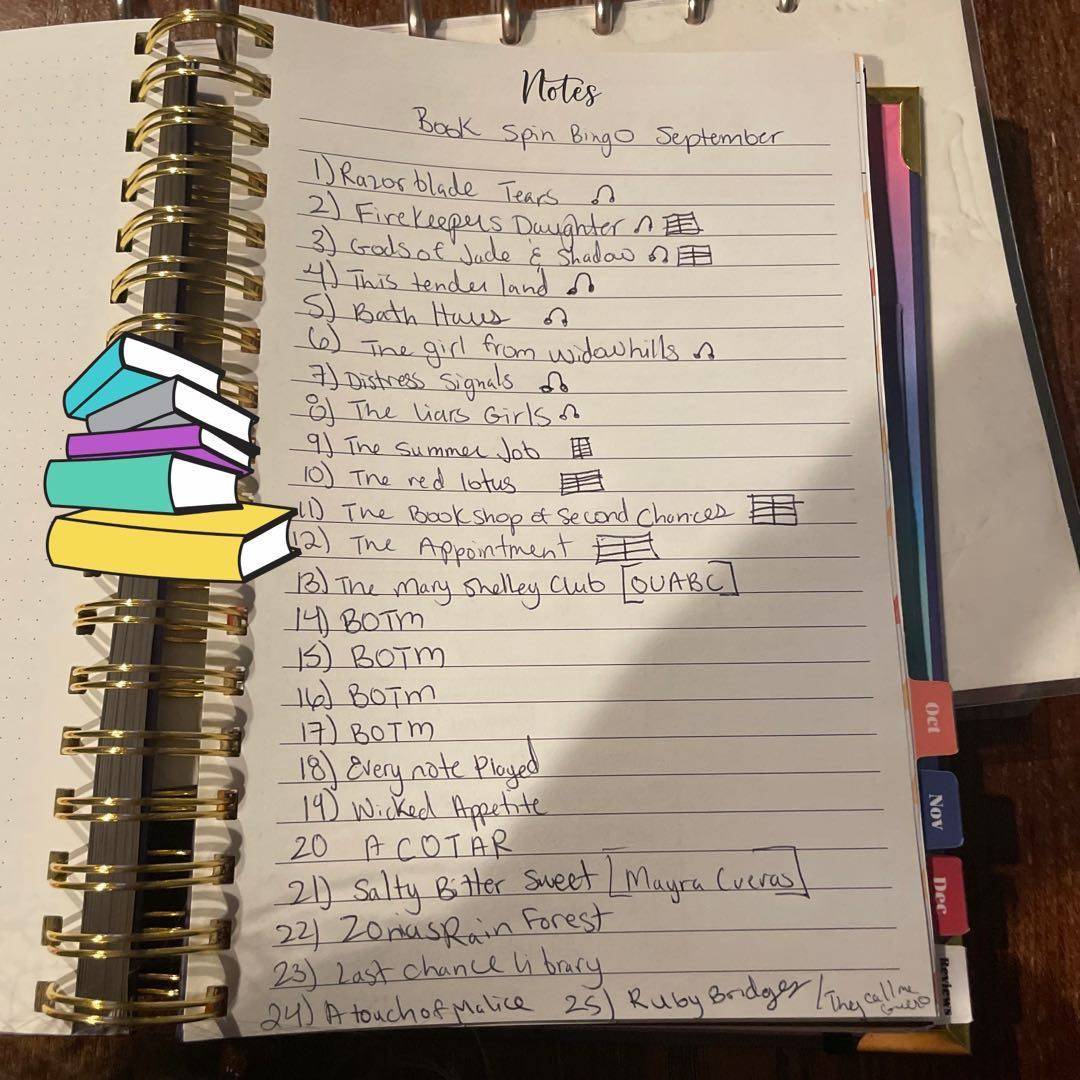 Notes
Book Spin Bingo September
1) Razorblade Tears
2) Firekeepers Daughter
3) Gods of Jade & Shadow
4) This tender land
5) Bath Haus
6) The girl from widowhills
7) Distress Signals
8) The liars Girls
9) The summer Job
10) The red lotus
11) The Bookshop of Second Chances
12) The Appointment
13) The Mary Shelley Club [OUABC]
14) BOTM
15) BOTM
16) BOTM
17) BOTM
18) Every note Played
19) Wicked Appetite
20 ACOTAR
21) Salty Bitter Sweet [Mayra Cuevas]
22) Rain Forest
23) Last chance library
24) A touch of Malice 25) Ruby Bridges / They call me Guero
Oct
Nov
Dec
Reviews